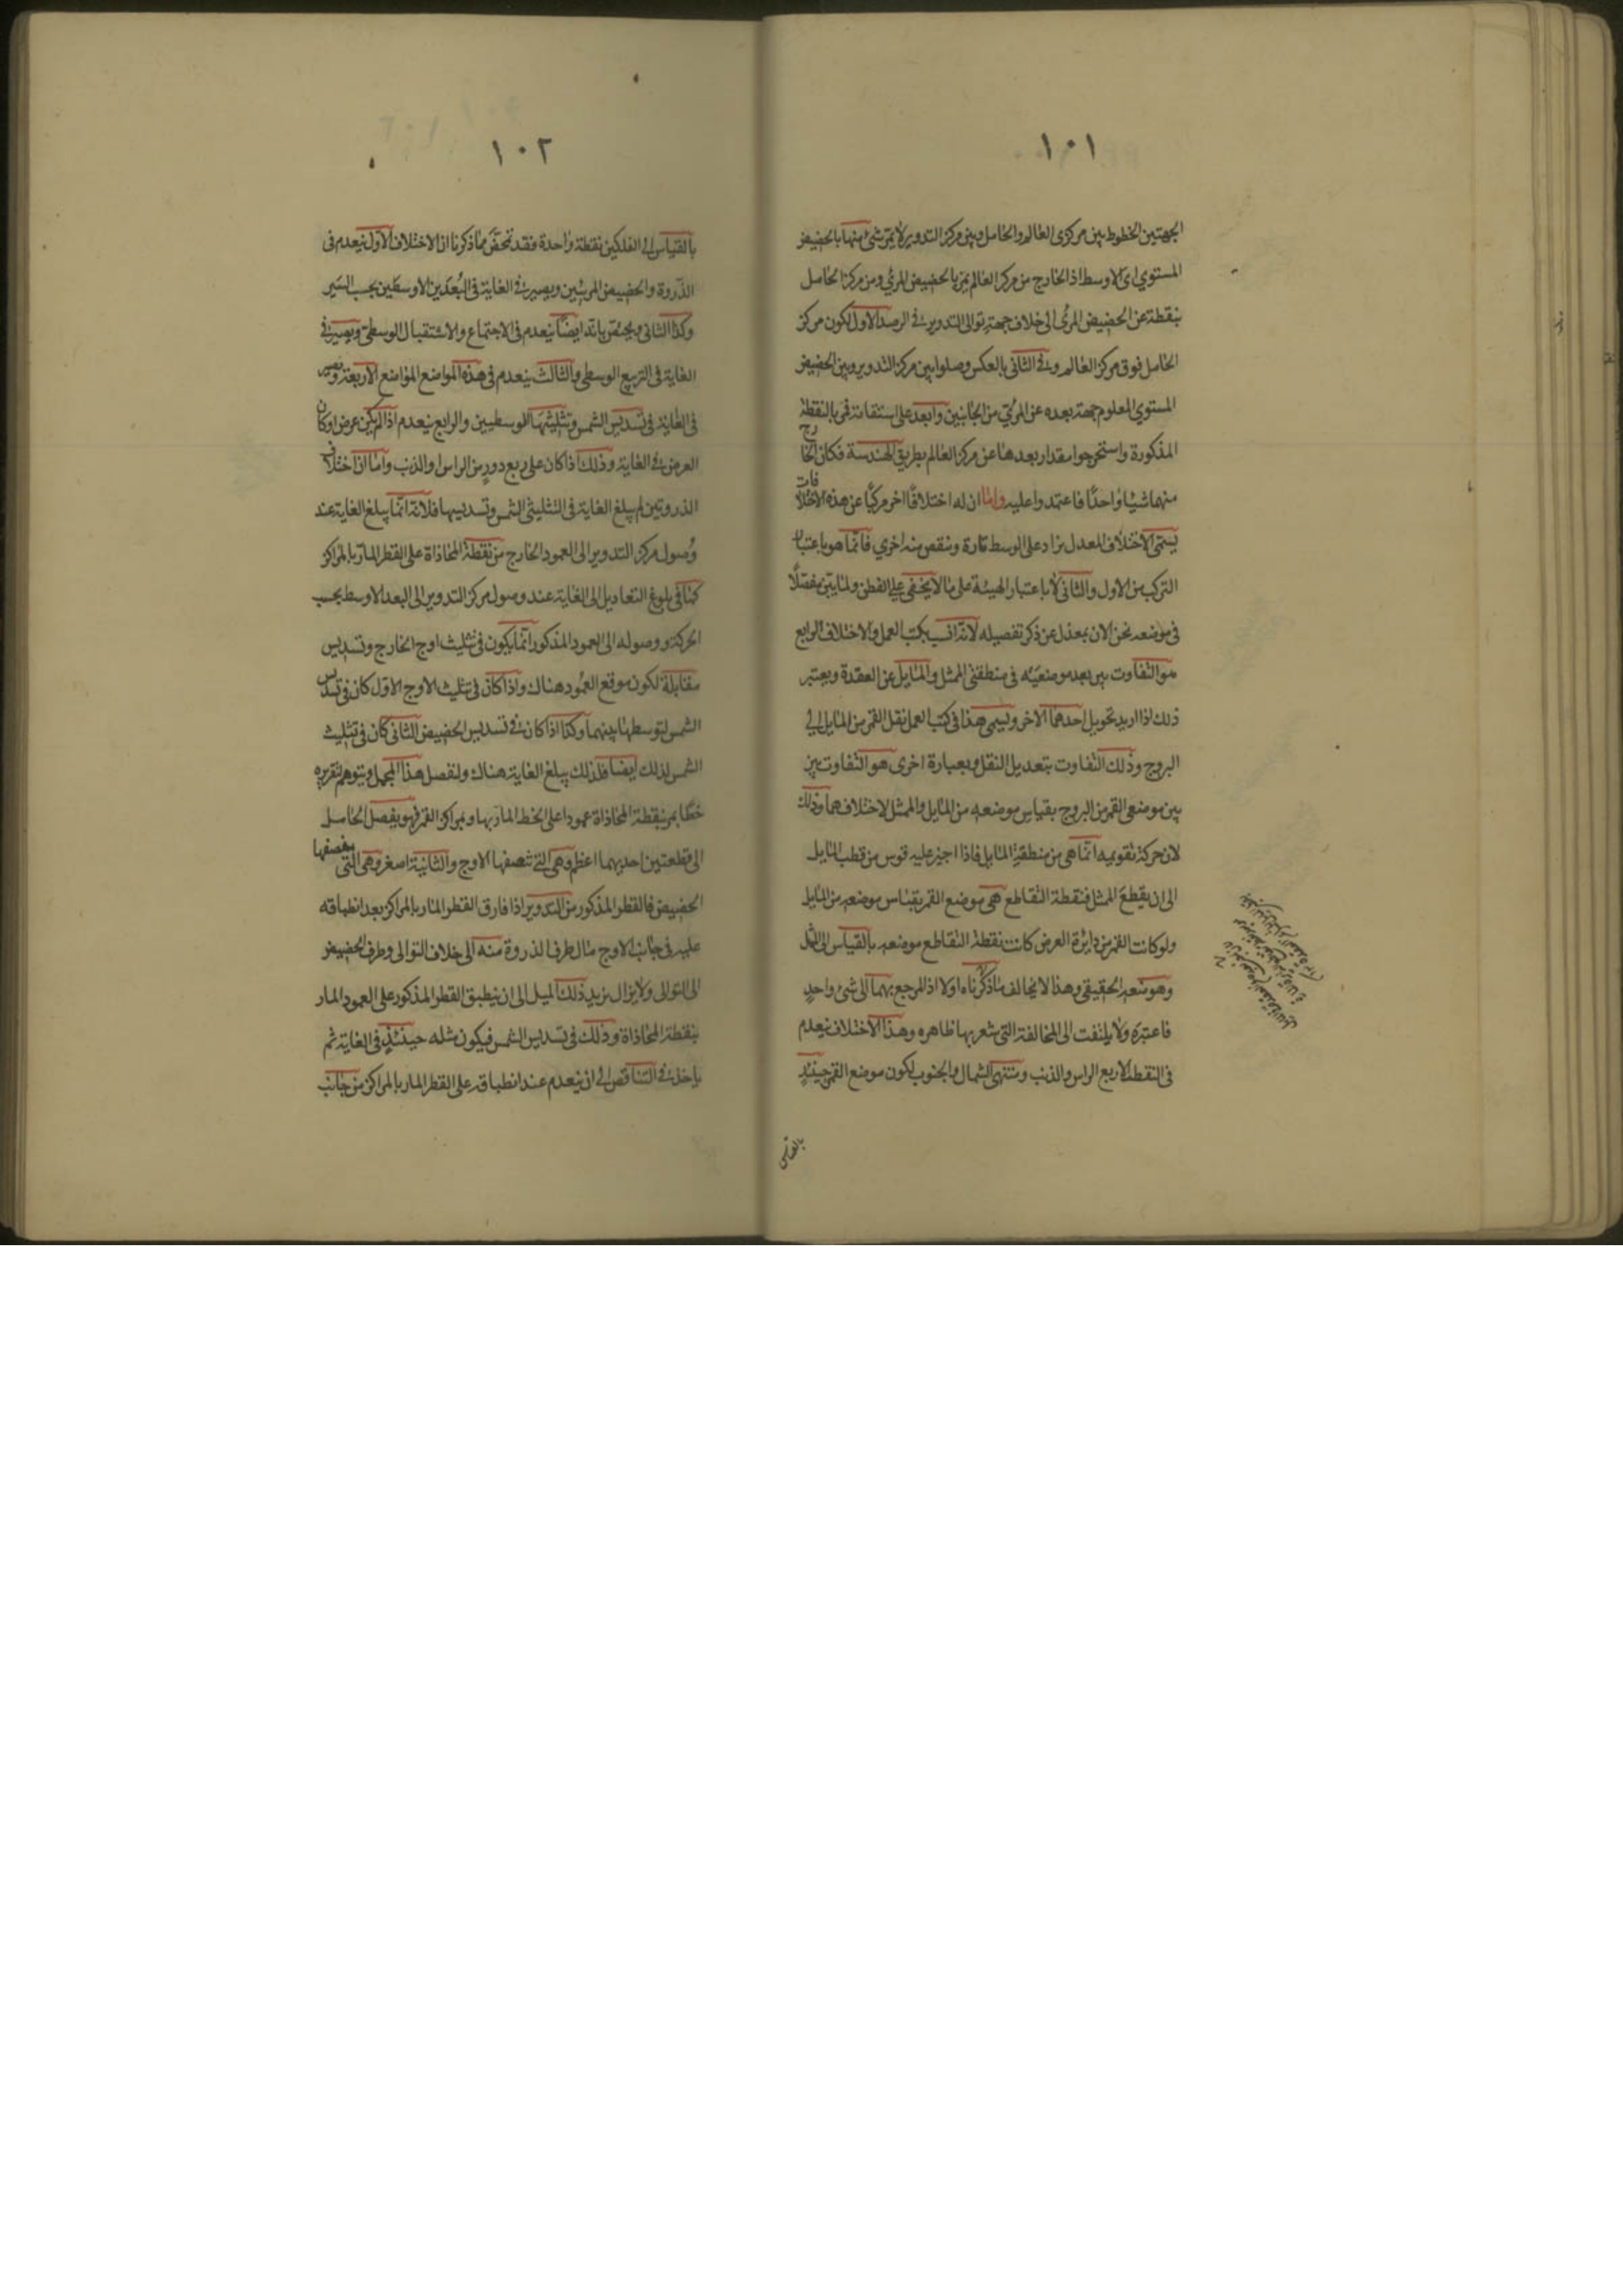 ١٠١
الجهتين الخطوط بين مركزى العالم والحامل وبين مركز التدوير لا يمر شئ منها بالحضيض
المستوي اى الاوسط اذ الخارج من مركز العالم يمر بالحضيض المرئي ومن مركز الحامل
بنقطة عن الحضيض المرئى الى خلاف جهة توالى التدوير فى الرصد الاول لكون مركز
الحامل فوق مركز العالم وفى الثانى بالعكس وصلوا بين مركز التدوير وبين الحضيض
المستوي المعلوم جهة بعده عن المرئى من الجانبين وابعد على استقامة فمر بالنقطة
المذكورة واستخرجوا مقدار بعدها عن مركز العالم بطريق الهندسة فكان الخارج
منهما شيئا واحدًا فاعتمدوا عليه واما ان له اختلافًا اخر مركبًا عن هذه الاختلافات
يسمى الاختلاف المعدل يزاد على الوسط تارة وينقص منه اخري فانما هو باعتبار
التركب من الاول والثانى لا باعتبار الهيئة على ما لا يخفى على الفطن ولما يتبين مفصلًا
فى موضعه نحن الان بمعزل عن ذكر تفصيله لانه انسب بكتب العمل والاختلاف الرابع
هو التفاوت بين بعد موضعيه فى منطقتى الممثل والمايل عن العقدة ويعتبر
ذلك اذا اريد تحويل احدهما الاخر ويسمى هذا فى كتب العمل نقل القمر من المايل الى
البروج وذلك التفاوت بتعديل النقل وبعبارة اخرى هو التفاوت بين
بين موضعى القمر من البروج بقياس موضعه من المايل والممثل لاختلافهما وذلك
لان حركة تقويمه انما هى من منطقة المايل فاذا اجيز عليه قوس من قطب المايل
الى ان يقطع الممثل فنقطة التقاطع هى موضع القمر بقياس موضعه من المايل
ولو كانت القمر من دايرة العرض كانت نقطة التقاطع موضعه بالقياس الى الممثل
وهو موضعه الحقيقى وهذا لا يخالف ما ذكرناه اولا اذ المرجع بهما الى شئ واحدٍ
فاعتبره ولا يلتفت الى المخالفة التى يشعر بها ظاهره وهذا الاختلاف ينعدم
فى النقط الاربع الراس والذنب ومنتهى الشمال والجنوب لكون موضع القمر حينئذٍ
بالقياس
١٠٢
بالقياس الى الفلكين نقطة واحدة فقد تحقق مما ذكرنا ان الاختلاف الاول ينعدم فى
الذروة والحضيض المرئيين ويصير فى الغاية فى البعدين الاوسطين بحسب السير
وكذا الثانى ويختص بانه ايضًا ينعدم فى الاجتماع والاستقبال الوسطى ويصير فى
الغاية فى التربيع الوسطى والثالث ينعدم فى هذه المواضع المواضع الاربعة ويصير
فى الغاية فى تسديس الشمس وتثليثها الوسطيين والرابع ينعدم اذا لم يكن عرض او كان
العرض فى الغاية وذلك اذا كان على ربع دورٍ من الراس او الذنب واما ان اختلاف
الذروتين لم يبلغ الغاية فى التثليثى الشمس وتسديسها فلانه انما يبلغ الغاية عند
وصول مركز التدوير الى العمود الخارج من نقطة المحاذاة على القطر المار بالمراكز
كما فى بلوغ التعاديل الى الغاية عند وصول مركز التدوير الى البعد الاوسط بحسب
الحركة ووصوله الى العمود المذكور انما يكون فى تثليث اوج الخارج وتسديس
مقابلة لكون موقع العمود هناك واذا كان فى تثليث الاوج الاول كان فى تسديس
الشمس لتوسطها بينهما وكذا اذا كان فى تسديس الحضيض الثانى كان فى تثليث
الشمس لذلك ايضا فلذلك يبلغ الغاية هناك ولنفصل هذا المجمل ونتوهم لتقريره
خطًا يمر بنقطة المحاذاة عمودا على الخط المار بها وبمراكز القمر فهو يفصل الحامل
الى قطعتين احديهما اعظم وهى التى تنصفها الاوج والثانية اصغر وهى التى ينصفها
الحضيض فالقطر المذكور من التدوير اذا فارق القطر المار بالمراكز بعد انطباقه
عليه فى جانب الاوج مال طرف الذروة منه الى خلاف التوالى وطرف الحضيض
الى التوالى ولا يزال يزيد ذلك الميل الى ان ينطبق القطر المذكور على العمود المار
بنقطة المحاذاة وذلك فى تسديس الشمس فيكون مثله حينئذٍ فى الغاية ثم
ياخذ فى التناقص الى ان ينعدم عند انطباقه على القطر المار بالمراكز من جانب